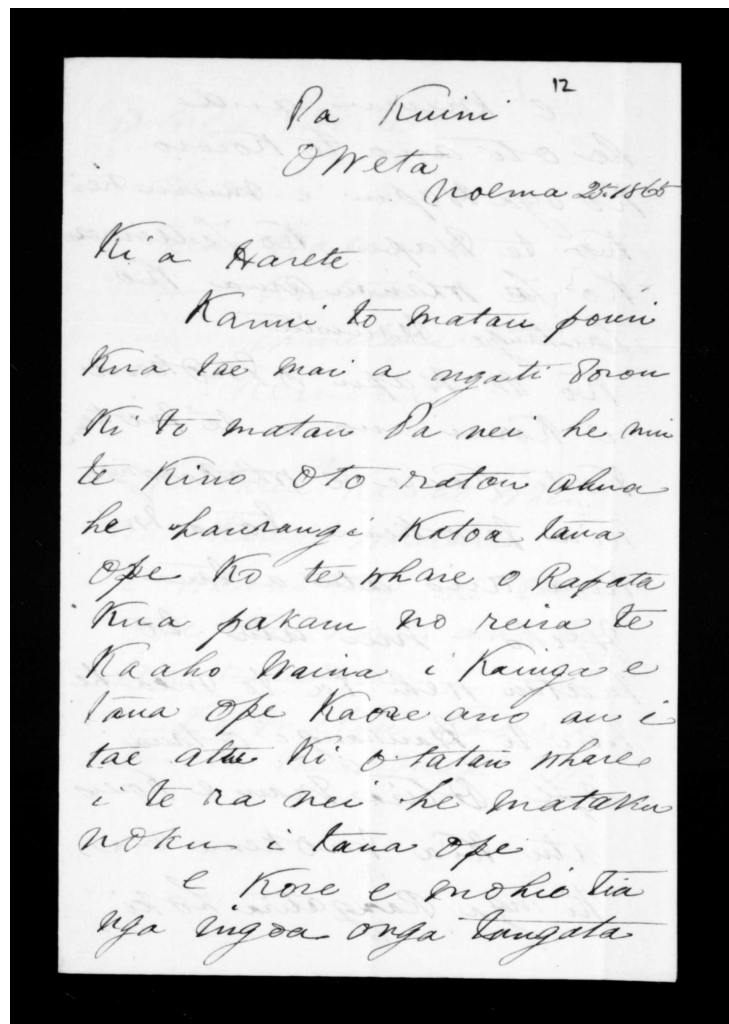 12
Pa Kuini
OWeta
Noema 25. 1865
Ki a Harete
Kanui to matau pouri
Kua tae mai a ngati Porou
Ki to matau Pa nei he nui
te Kino O to ratou ahua
he haurangi Katoa taua
Ope Ko te whare o Rapata
Kua pakaru no reira te
Kaaho Waina i Kainga e
taua Ope Kaore ano au i
tae atu Ki o tatau whare
i te ra nei he mataku
noku i taua Ope
e Kore e mohio tia
nga ingoa onga tangata